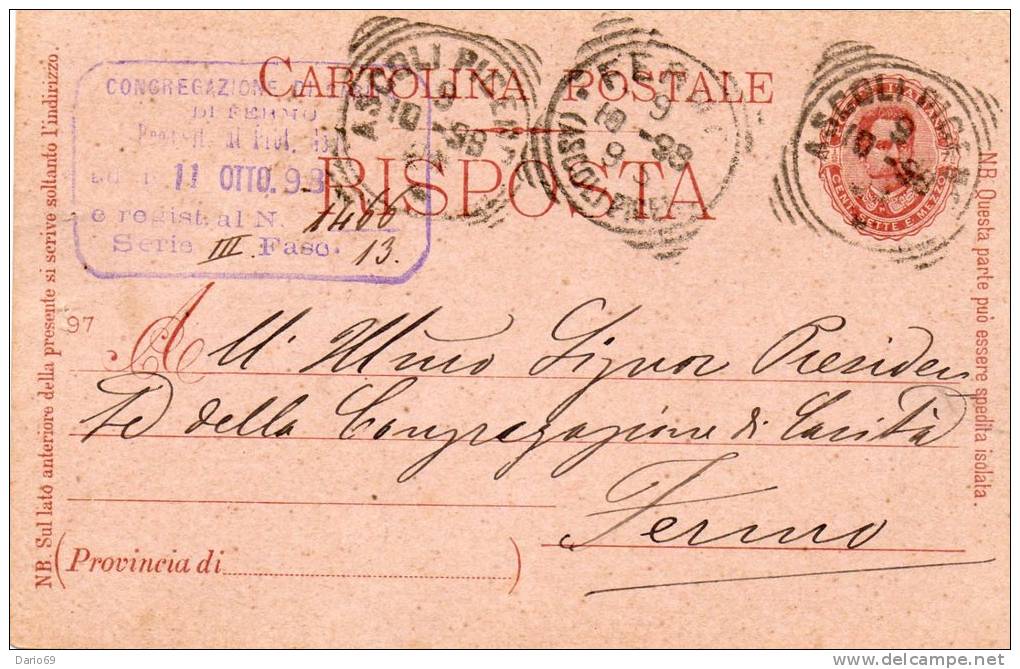 CARTOLINA POSTALE
RISPOSTA
CONGREGAZIONE DI
DI FERMO
11 OTTO. 98
e regist. al N. 1400
Serie III Fasc. 13.
ASCOLI PICENO
9
10-98
FERMO
9
10-98
9 S
(ASCOLI PICENO)
ASCOLI PICENO
9
10-98
CENT. SETTE E MEZZO
97
All' Illmo Signor Presiden
te della Congregazione di Carità
Fermo
(Provincia di )
NB. Sul lato anteriore della presente si scrive soltanto l'indirizzo.
NB. Questa parte può essere spedita isolata.
Dario69
delcampe.net